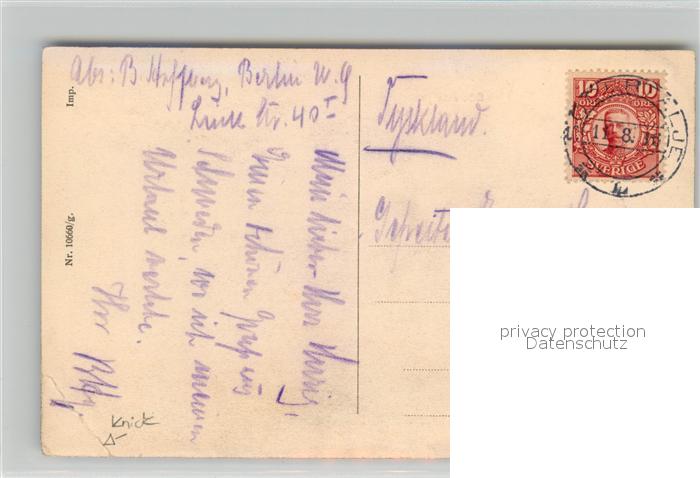 Abs: B. Hoffberg, Berlin W. 9
Linkstr. 40 I
Tyskland.
Mein lieber Herr
Einen schönen Gruß aus
Schweden, wo ich meinen
Urlaub verlebe.
Ihr
Imp.
Nr. 10660/g.
10 10
ÖRE ÖRE
SVERIGE
11. 8.
Knick
privacy protection
Datenschutz